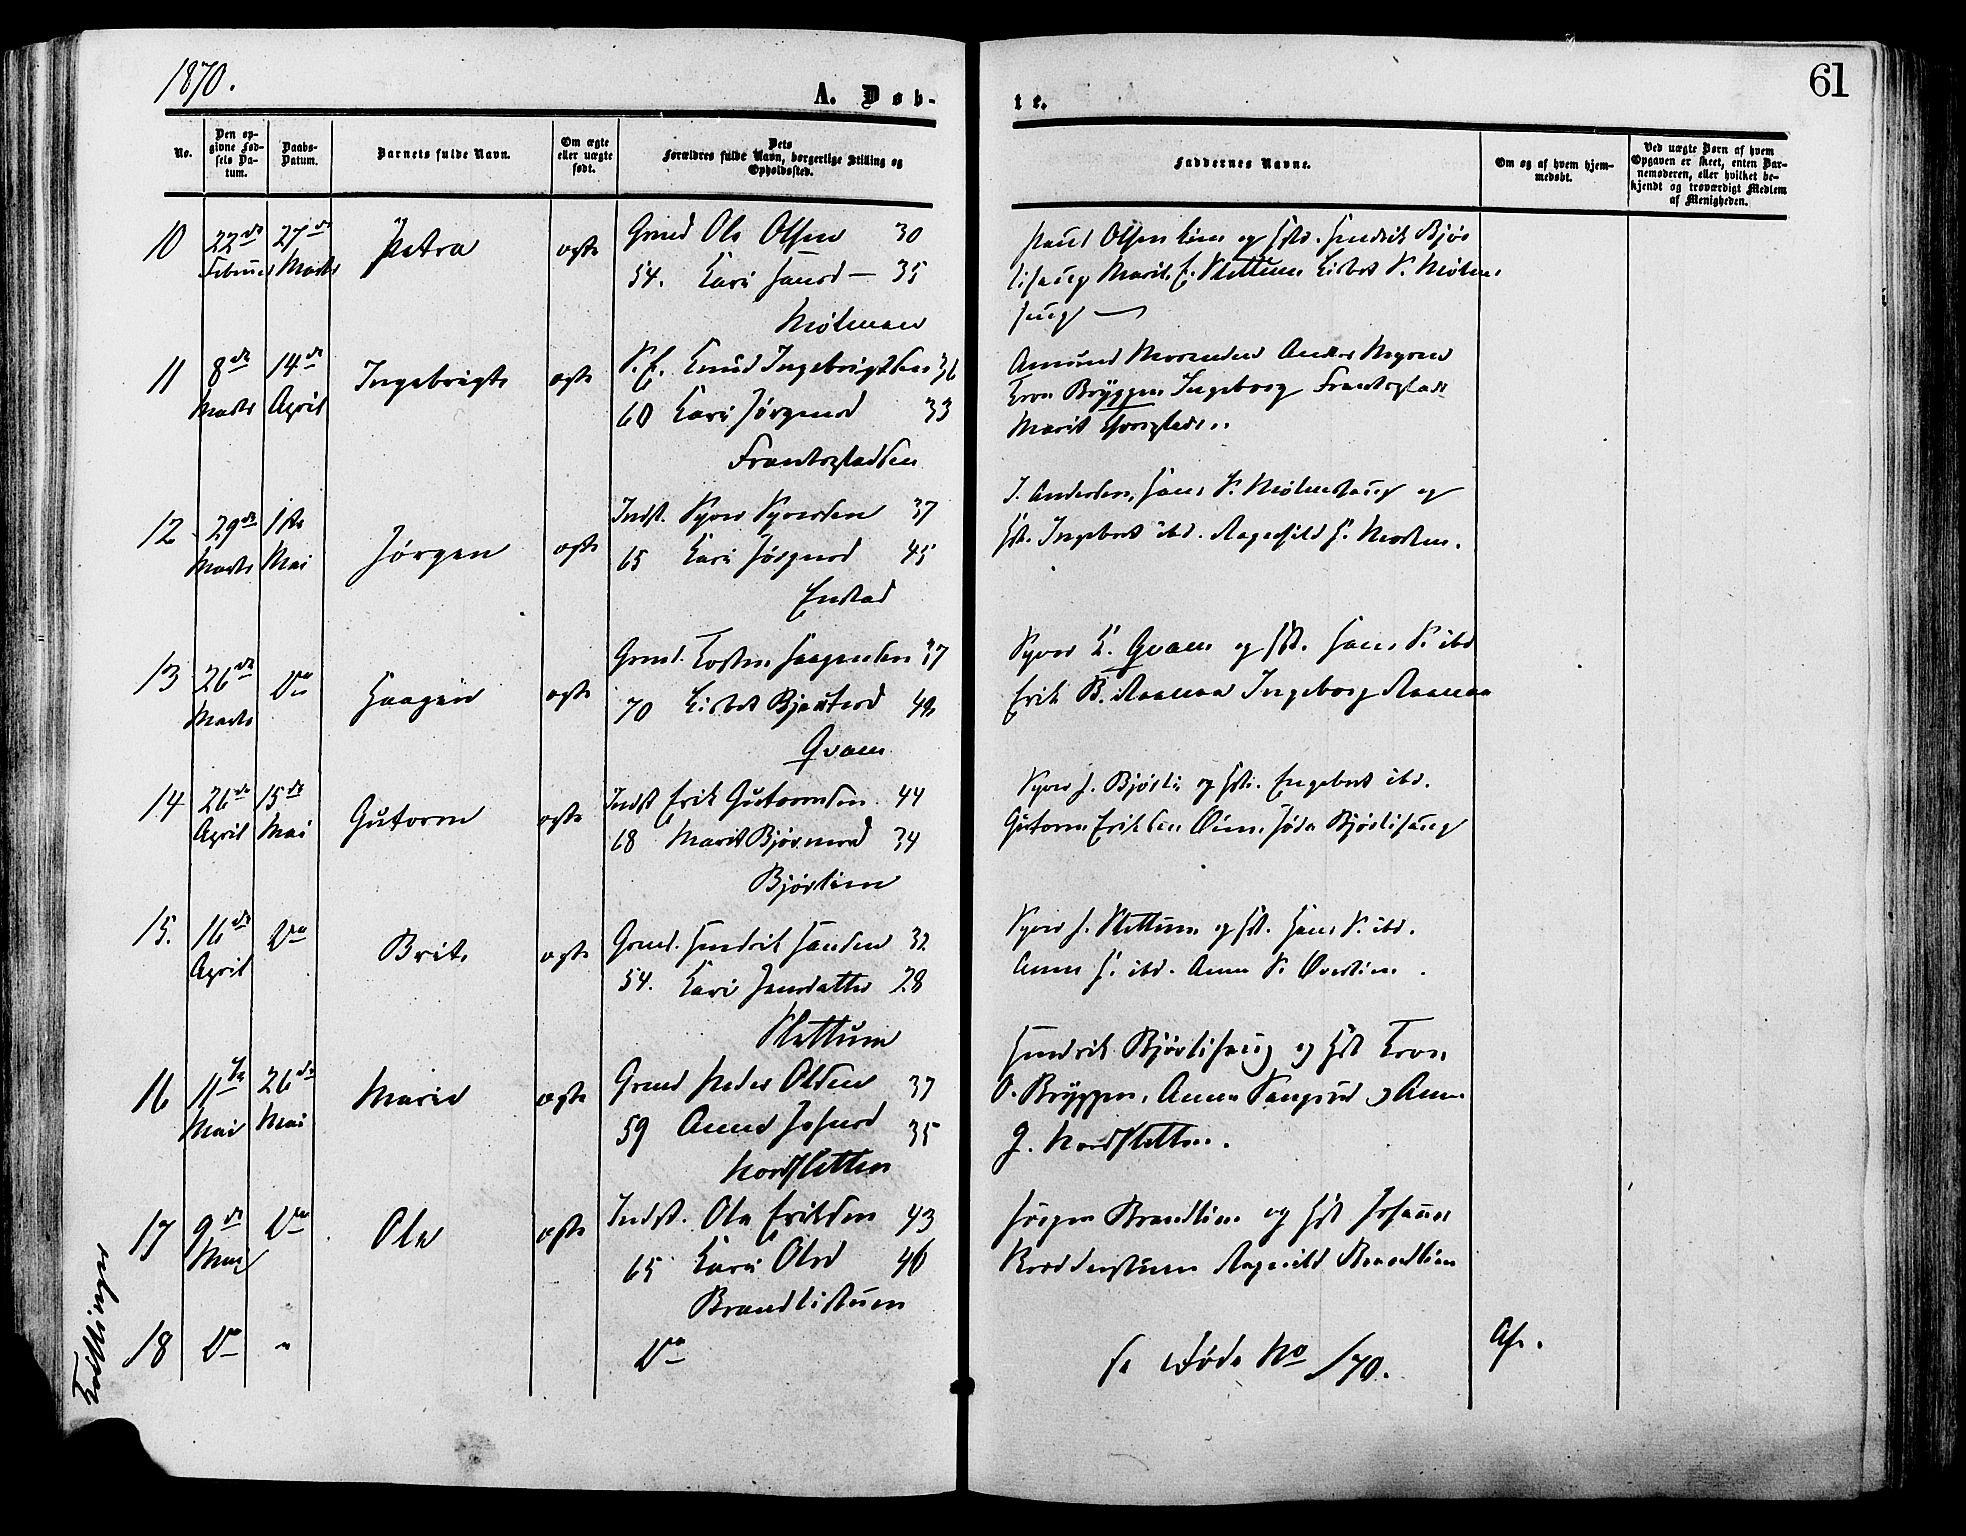 1870.
A. Døb-
te.
61
No.
Den opgivne Fødsels Datum.
Daabs-Datum.
Barnets fulde Navn.
Om ægte eller uægte født.
Dets Forældres fulde Navn, borgerlige Stilling og Opholdssted.
Faddernes Navne.
Om og af hvem hjemmedøbt.
Ved uægte Børn af hvem Opgaven er skeet, enten Barnemoderen, eller hvilket bekjendt og troværdigt Medlem af Menigheden.
10 22de Februar 27de Marts Petra ægte
Grmd Ole Olsen 30
54. Kari Hansd — 35
Mølman
Paul Olsen Lien og Hst. Hendrik Bjør
lihaug Marit E. Slettum Lisbet S. Mølm
haug
11 8de Marts 14de April Ingebrigt ægte
S. E. Knud Ingebrigtsen 36
60 Kari Jørgensd 33
Frantsstadsen
Amund Anders
Tron Bryggen Ingeborg Frantsstad
Marit
12 29de Marts 1ste Mai Jørgen ægte
Indst. Syver Syversen 37
65 Kari Jørgensd 45
Enstad
J. Andersen, Hans S. Mølmshaug og
Hst. Ingebret ibd. Ragnhild H. Morken.
13 26de Marts Do Haagen ægte
Grmd. Torsten Haagensen 37
70 Lisbet Bjørnsd
Qvam
Syver T. Qvam og Hst. Hans S. ibd
Erik B. Raanaa Ingeborg Raanaa
14 26de April 15de Mai Gutorm ægte
Indst Erik Gutormsen 44
68 Marit Bjørnsd 34
Bjørlien
Syver J. Bjørli og Hst. Engebret ibd.
Gutorm Eriksen Øien, Bjørlihaug
15. 16de April Do Brit ægte
Grmd. Hendrik Hansen 32
54. Kari Jensdatter 28
Slettum
Syver J. Slettum og Hst. Hans S. ibd.
Anne H. ibd. Anne S. Øverlien.
16 11te Mai 26de Mai Marie ægte
Grmd Peder Olsen 37
59 Anne Johnsd 35
Nordsletten
Hendrik Bjørlihaug og Hst Tron
O. Bryggen, Anne og Anne
J. Nordsletten.
17 9de Mai Do Ole ægte
Indst. Ole Eriksen 43
65 Kari Olsd 46
Brandlistuen
Jørgen Brandlien og Hst Johannes
Ragnild Brandlien
18 Do " Do
se Døde No 1 70.
Tvillinger